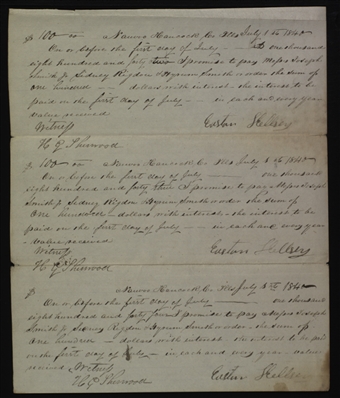 $ 100 00 Nauvoo Hancock Co Ills July 1 st 1840
On or before the first day of July one thousand
eight hundred and forty two I promise to pay Messrs Joseph
Smith Jr Sidney Rigdon & Hyrum Smith or order the sum of
One hundred dollars with interest the interest to be
paid on the first day of July in each and every year
value received
Witness
H G Sherwood
$ 100 00 Nauvoo Hancock Co Ills July 1 st 1840
On or before the first day of July one thousand
eight hundred and forty I promise to pay Messrs Joseph
Smith Jr Sidney Rigdon Hyrum Smith or order the sum of
One hundred dollars with interest the interest to be
paid on the first day of July in each and every year
value received
Witness
H G Sherwood
$ Nauvoo Hancock Co Ills July 1 st 1840
On or before the first day of July one thousand
eight hundred and forty I promise to pay Messrs Joseph
Smith Jr Sidney Rigdon & Hyrum Smith or order the sum of
One hundred dollars with interest the interest to be paid
on the first day of July in each and every year value
received Witness
H G Sherwood